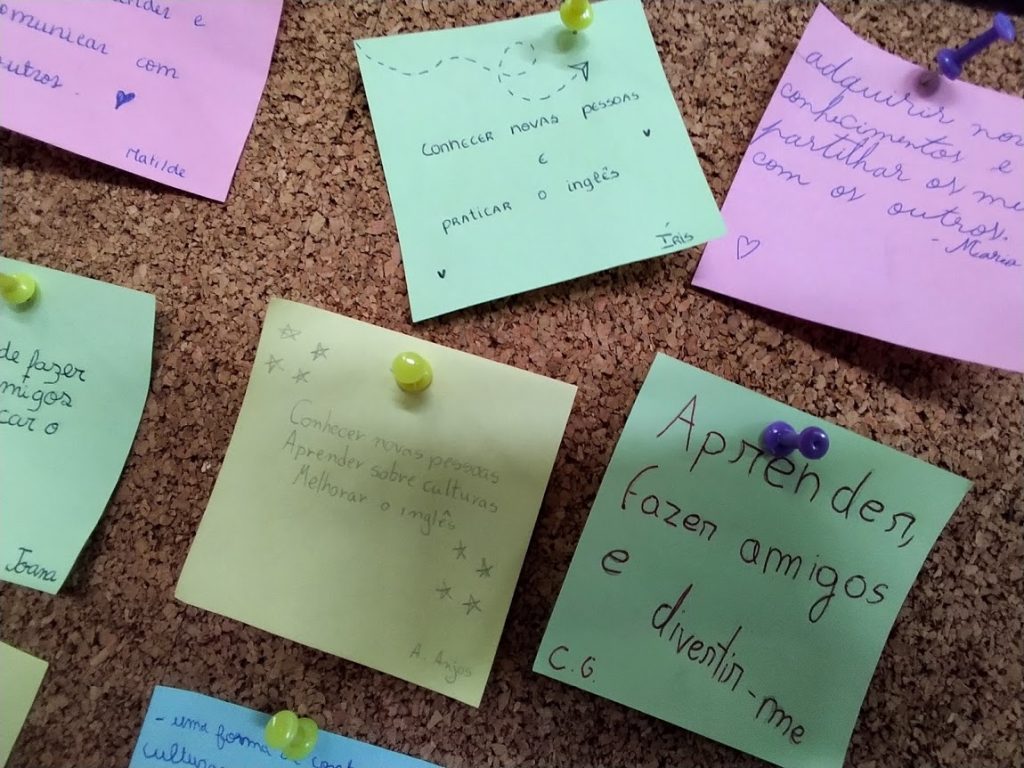 e
com
Matilde
CONHECER NOVAS PESSOAS
E
PRATICAR O inglês
Íris
adquirir
conhecimentos e
partilhar os
com os outros.
- Maria
de fazer
Joana
Conhecer novas pessoas
Aprender sobre culturas
Melhorar o inglês
A. Anjos
Aprender,
fazer amigos
e
divertir-me
C.G.
- uma forma